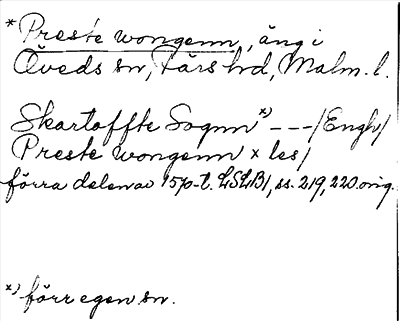 *Preste wongenn, äng i
Öveds sn, Färs hd, Malm. l.
Skartoffte Sognn *) --- /Engh/
Preste wongenn × les/
förra delen av 1570-t. LSLB1, ss. 219, 220 orig.
*) förr egen sn.